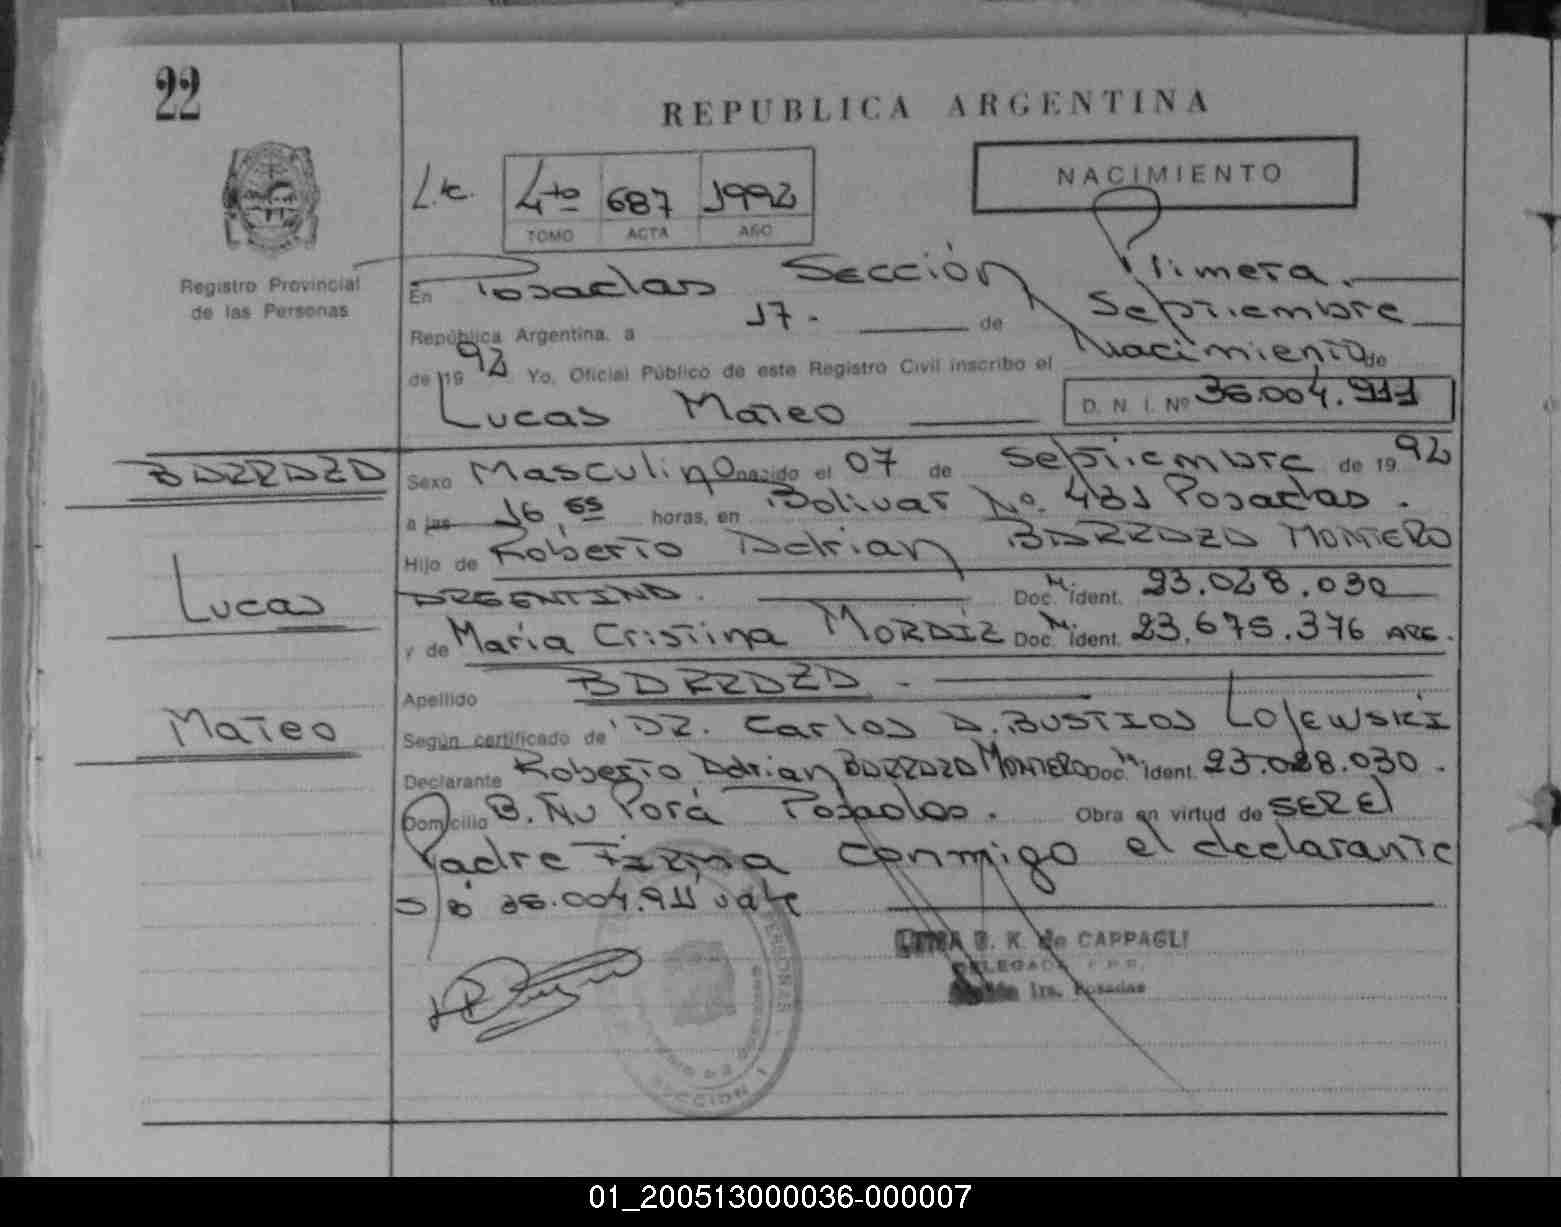 22
REPUBLICA ARGENTINA
NACIMIENTO
L.C. 4to 687 1992
TOMO ACTA AÑO
Registro Provincial
de las Personas
En Posadas Sección Primera
República Argentina, a 17. de Septiembre
de 1992 Yo, Oficial Público de este Registro Civil inscribo el Nacimiento de
Lucas Mateo D. N. I. Nº 36.004.911
BARRAZA
Sexo Masculino nacido el 07 de Septiembre de 1992
a las 16, horas, en Bolivar No. 431 Posadas.
Hijo de Roberto Adrian BARRAZA MONTERO
Lucas
ARGENTINO. Doc. M. Ident. 23.028.030
y de Maria Cristina MORAIZ Doc. M. Ident. 23.675.376 ARG.
Apellido BARRAZA.
Mateo
Según certificado de DR. Carlos A. BUSTIOS LOJEWSKI
Declarante Roberto Adrian BARRAZA MONTERO Doc. M. Ident. 23.028.030.
Domicilio B. Ñu Porá Posadas. Obra en virtud de SER El
Padre Firma conmigo el declarante
S/B 36.004.911 vale
B. K. de CAPPAGLI
DELEGADA
1ra. Posadas
SECCION 1
01_200513000036-000007